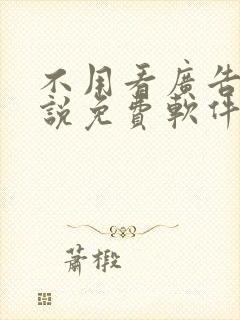 不用看廣告
說免費軟件
蕭椴